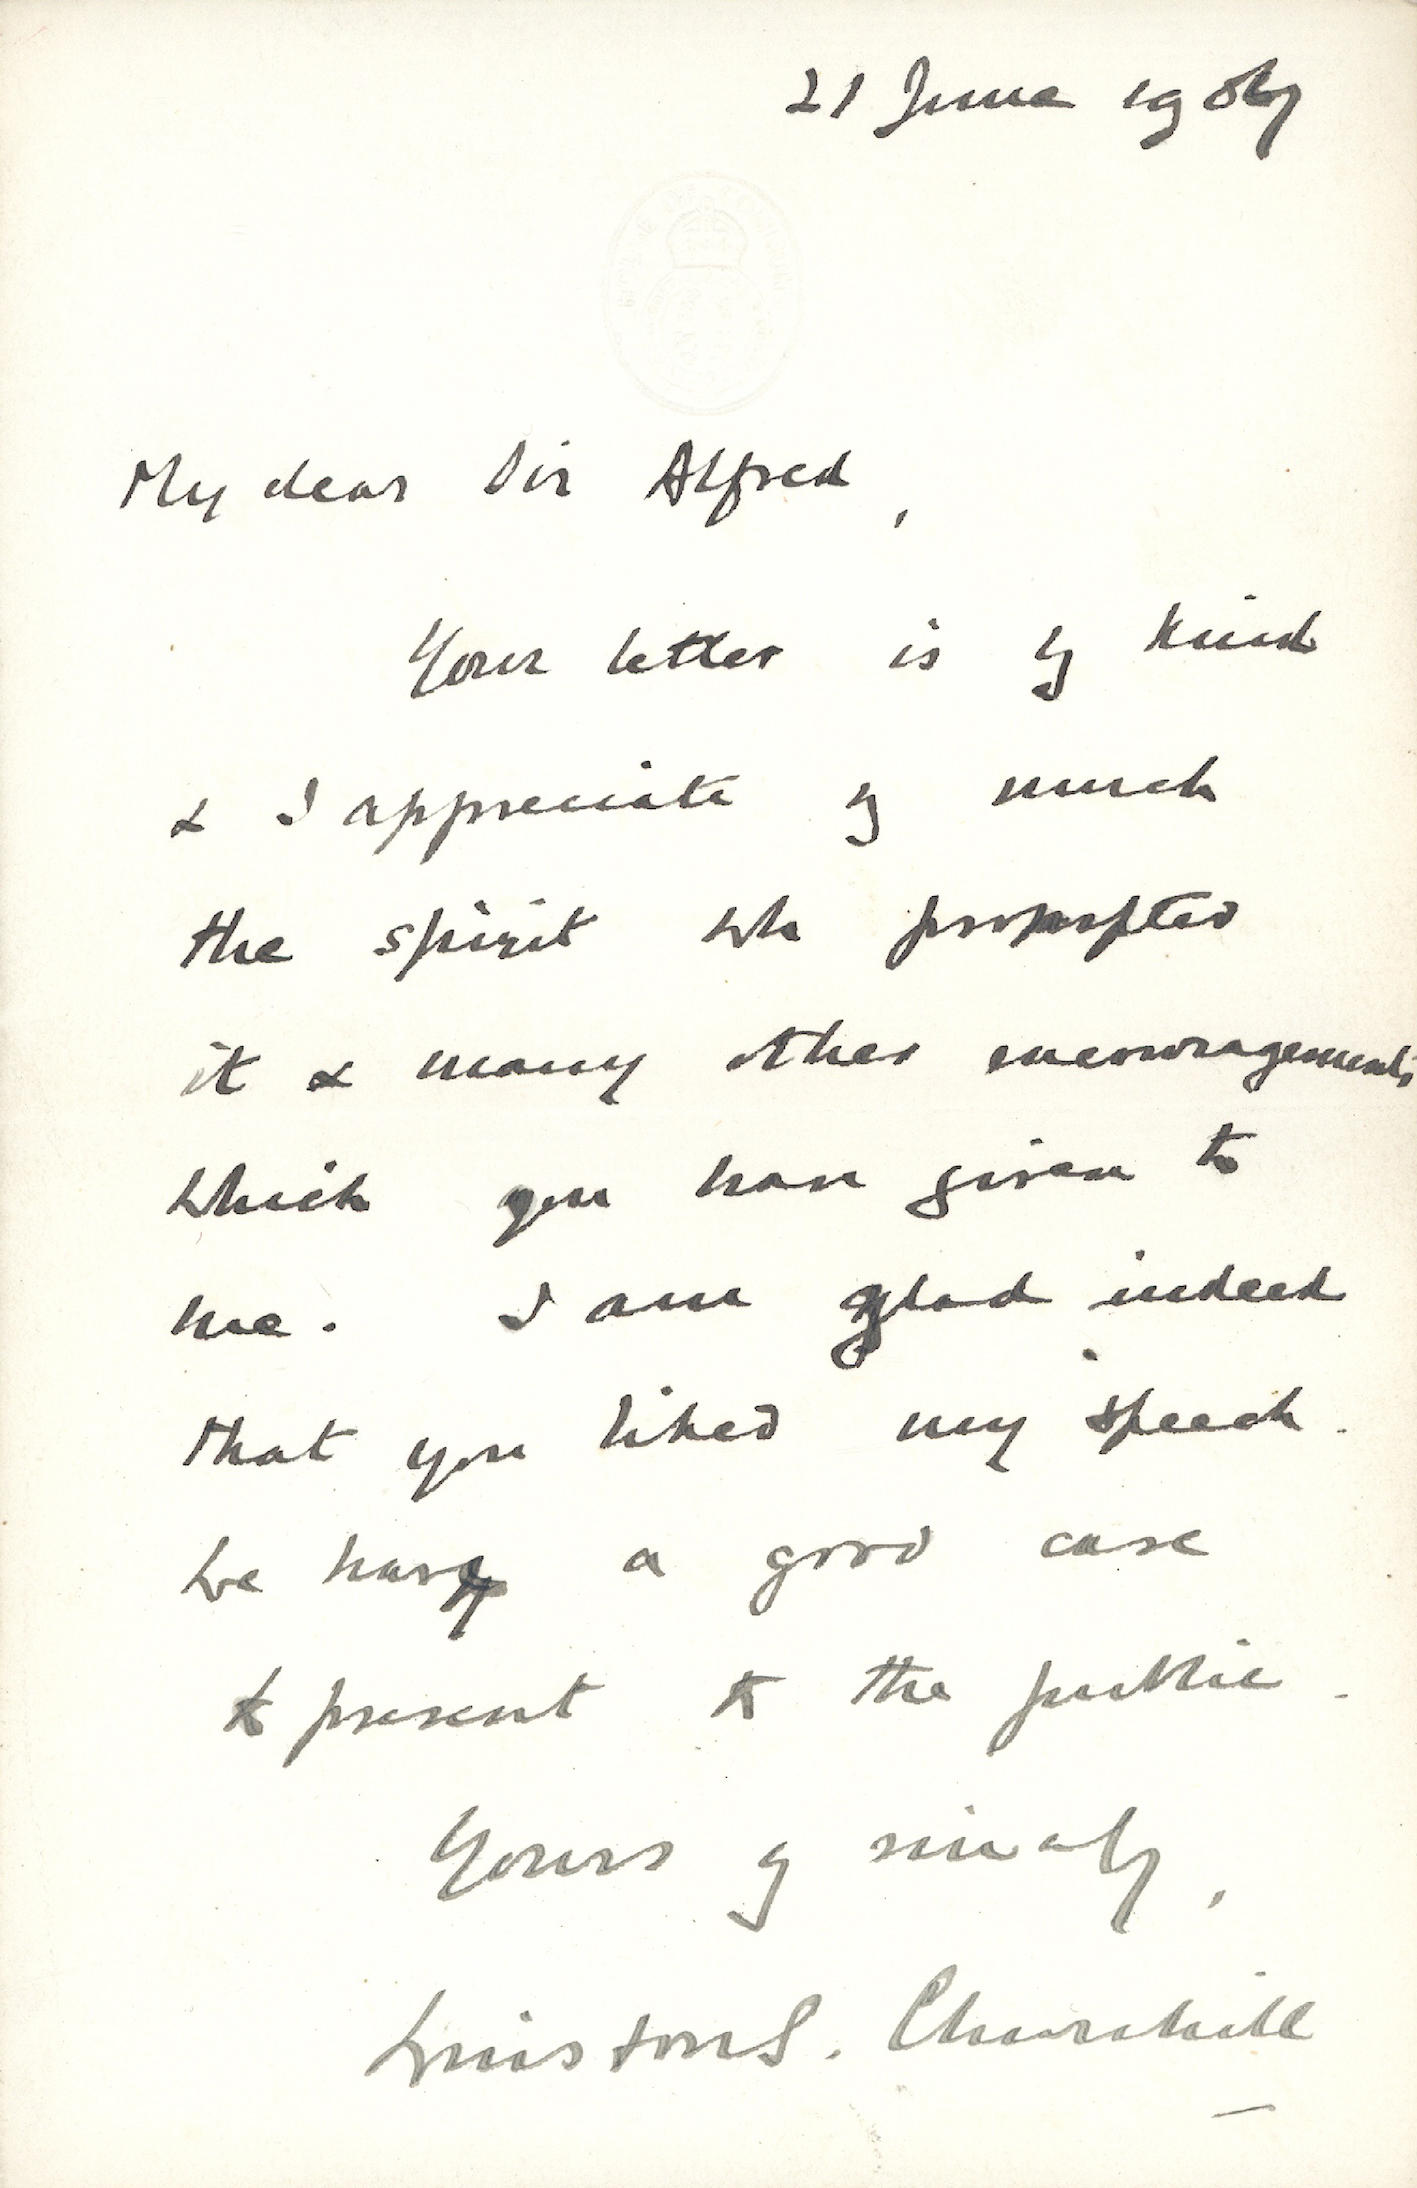 21 June 1907
My dear Sir Alfred,
Your letter is vy kind
& I appreciate vy much
the spirit wh prompted
it & many other encouragements
which you have given to
me. I am glad indeed
that you liked my speech.
We have a good case
to present to the public.
Yours vy sincely,
Winston S. Churchill